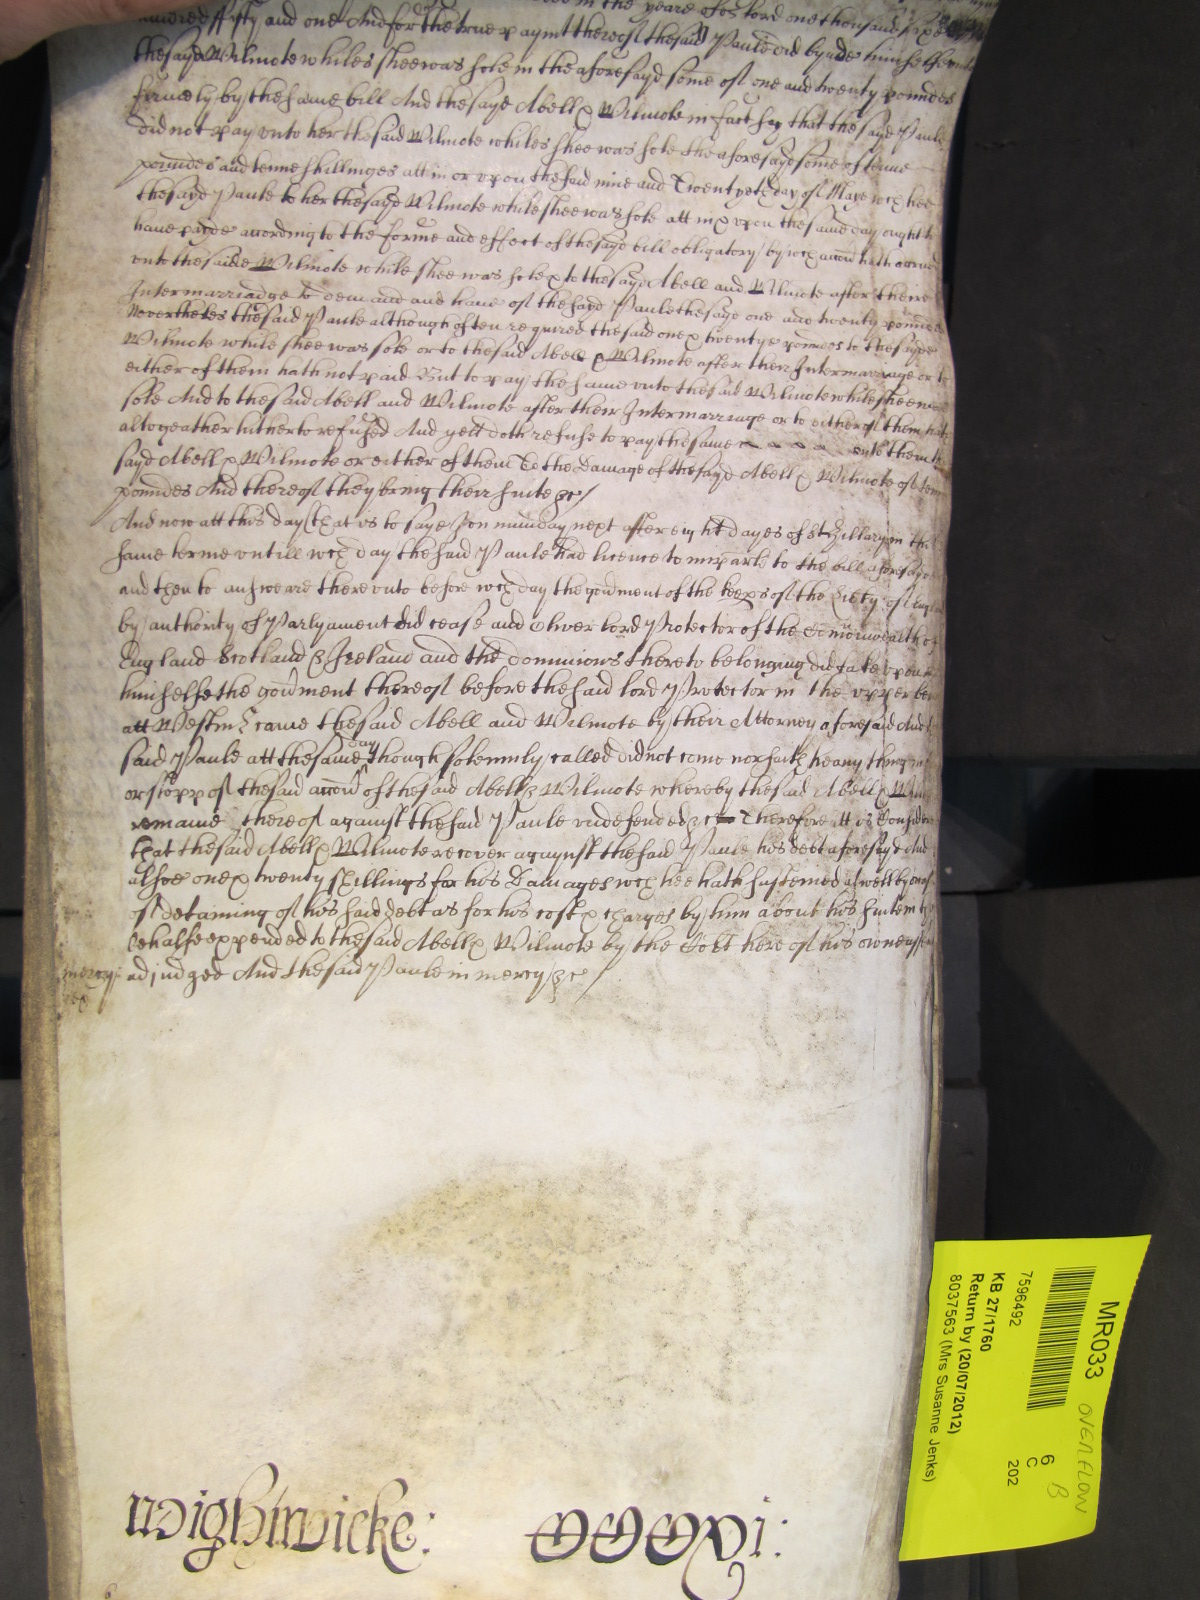 in the yeare of or lord one thousand sixe
hundred fifty and one And for the true paymt thereof the said Paule did bynde himselfe unto
the sayd Wilmote whiles shee was sole in the aforesayd some of one and twenty poundes
firmely by the same bill And the sayd Abell & Wilmote in fact say that the sayd Paule
did not pay unto her the said Wilmote whiles shee was sole the aforesayd some of tenne
poundes and tenne shillinges att in or upon the said nine and twentyeth day of Maye wch hee
the sayd Paule to her the sayd Wilmote while shee was sole att in & upon the same day ought to
have payde according to the forme and effect of the sayd bill obligatory by wch accon hath accrued
unto the saide Wilmote while shee was sole & to the sayd Abell and Wilmote after theire
Intermarriadge to demand and have of the sayd Paule the sayd one and twenty poundes
Neverthelesse the said Paule although often required the said one & twenty poundes to the sayd
Wilmote while shee was sole or to the said Abell & Wilmote after their Intermarriage or to
either of them hath not paid But to pay the same unto the said Wilmote while shee was
sole And to the said Abell and Wilmote after their Intermarriage or to either of them hath
altogeather hitherto refused And yett doth refuse to pay the same unto them the
sayd Abell & Wilmote or either of them To the Damage of the sayd Abell & Wilmote of tenn
poundes And thereof they bring their suite &c/
And now att this day (that is to saye) on munday next after eight dayes of St Hillary in the
same terme untill wch day the said Paule had licence to imparle to the bill aforesayd
and then to answeare thereunto before wch day the govrment of the keeps of the libty of England
by authority of Parlyament did cease and Oliver lord Protector of the Comonwealth of
England Scotland & Ireland and the dominions thereto belonging did take upon
himselfe the govrment thereof before the said lord Protector in the upper bench
att Westmr came the said Abell and Wilmote by their Attorney aforesaid And the
said Paule att the same day though solemnly called did not come nor saith he any thing in
or stopp of the said accon of the said Abell & Wilmote whereby the said Abell & Wilmote
remaine thereof against the said Paule undefended &c Therefore itt is Considered
that the said Abell & Wilmote recover against the said Paule his debt aforesayd And
alsoe one & twenty shillings for his Damages wch hee hath susteined aswell by occasion
of detaining of his said debt as for his cost & charges by him about his suite in this
behalfe expended to the said Abell & Wilmote by the Cort here of his owne assent
mercy adjudged And the said Paule in mercy &c/
Wightwicke:
MR033
OVERFLOW
7596492
6
B
C
202
KB 27/1760
Return by (20/07/2012)
8037563 (Mrs Susanne Jenks)